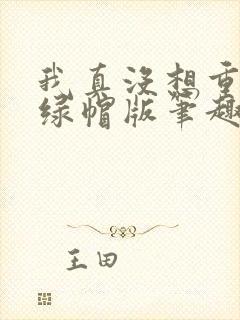 我真没想重
绿帽版笔趣
王田